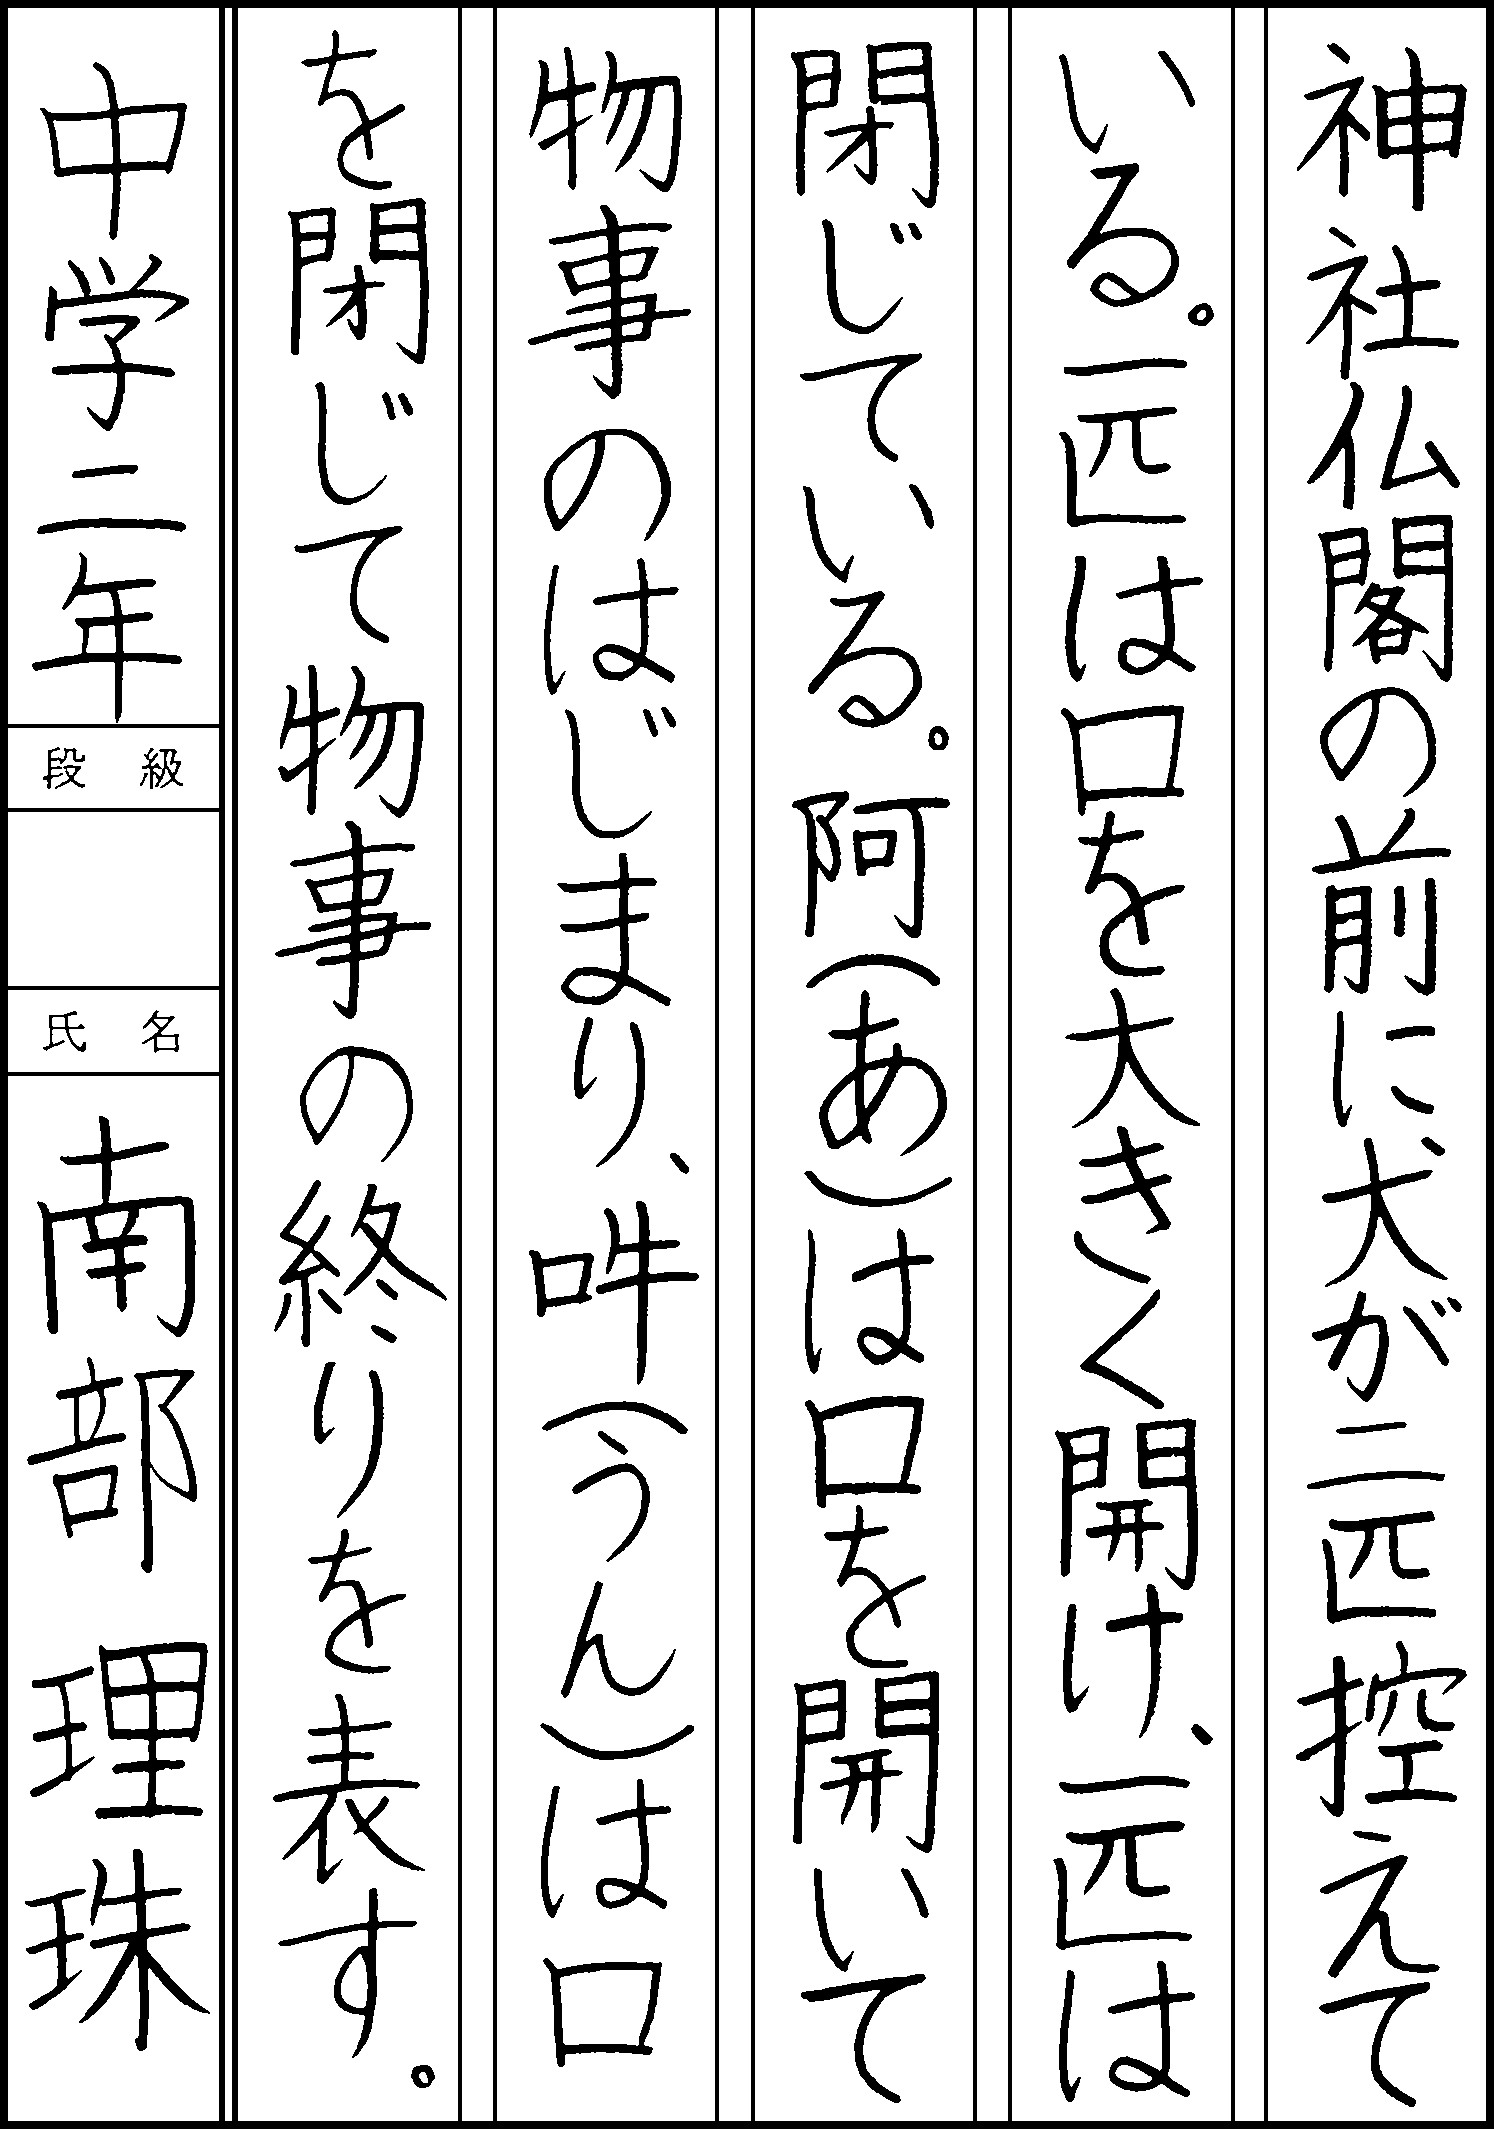 神社仏閣の前に、犬が二匹控えて
いる。一匹は口を大きく開け、一匹は
閉じている。阿(あ)は口を開いて
物事のはじまり、吽(うん)は口
を閉じて物事の終りを表す。
中学二年
段級
氏名
南部理珠